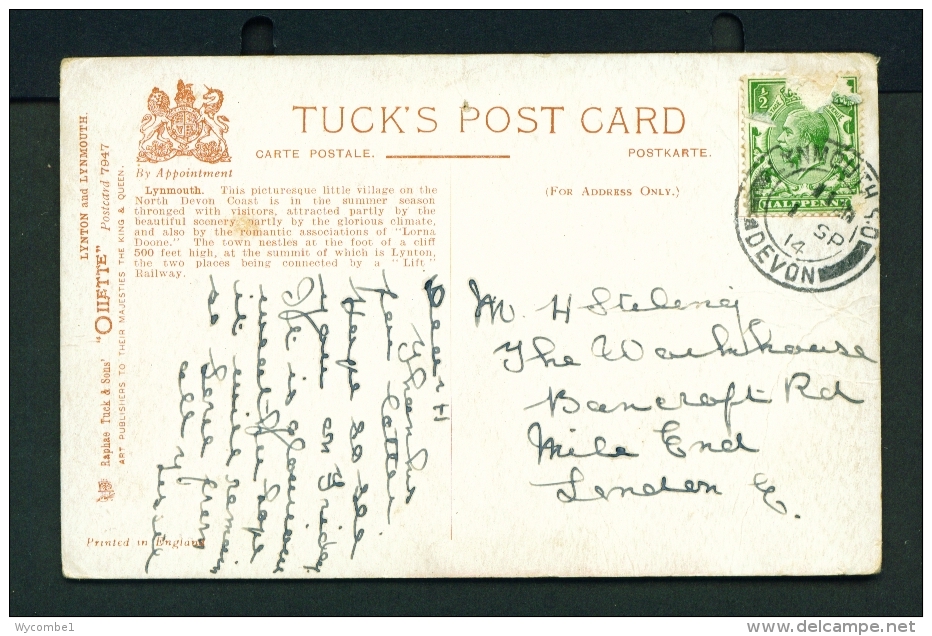 TUCK'S POST CARD
CARTE POSTALE. POSTKARTE.
By Appointment
(FOR ADDRESS ONLY.)
Lynmouth. This picturesque little village on the
North Devon Coast is in the summer season
thronged with visitors, attracted partly by the
beautiful scenery, partly by the glorious climate,
and also by the romantic associations of "Lorna
Doone." The town nestles at the foot of a cliff
500 feet high, at the summit of which is Lynton,
the two places being connected by a "Lift"
Railway.
LYNTON and LYNMOUTH.
Raphael Tuck & Sons' "OILETTE" Postcard 7947
ART PUBLISHERS TO THEIR MAJESTIES THE KING & QUEEN.
Printed in England
Dear H
Thanks
for letter
Hope to see
you on Friday
is glorious
hope
it will remain
so
all
M. H
The Workhouse
Bancroft Rd
Mile End
London E.
½
HALFPENNY
LYNMOUTH S.O
1 SP
14
DEVON
Wycombe1
www.delcampe.net